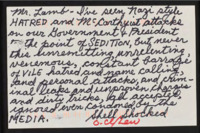 Mr. Lamb - I've seen Nazi style
HATRED and McCarthyist attacks
on our Government & President
to the point of SEDITION, but never
this unrelenting
venomous, constant barrage
of VILE hatred and name calling,
and personal attacks, and crim-
inal leaks and unproven charges
and dirty tricks, all accepted,
ignored, even condoned by the
MEDIA.
Shell Shocked